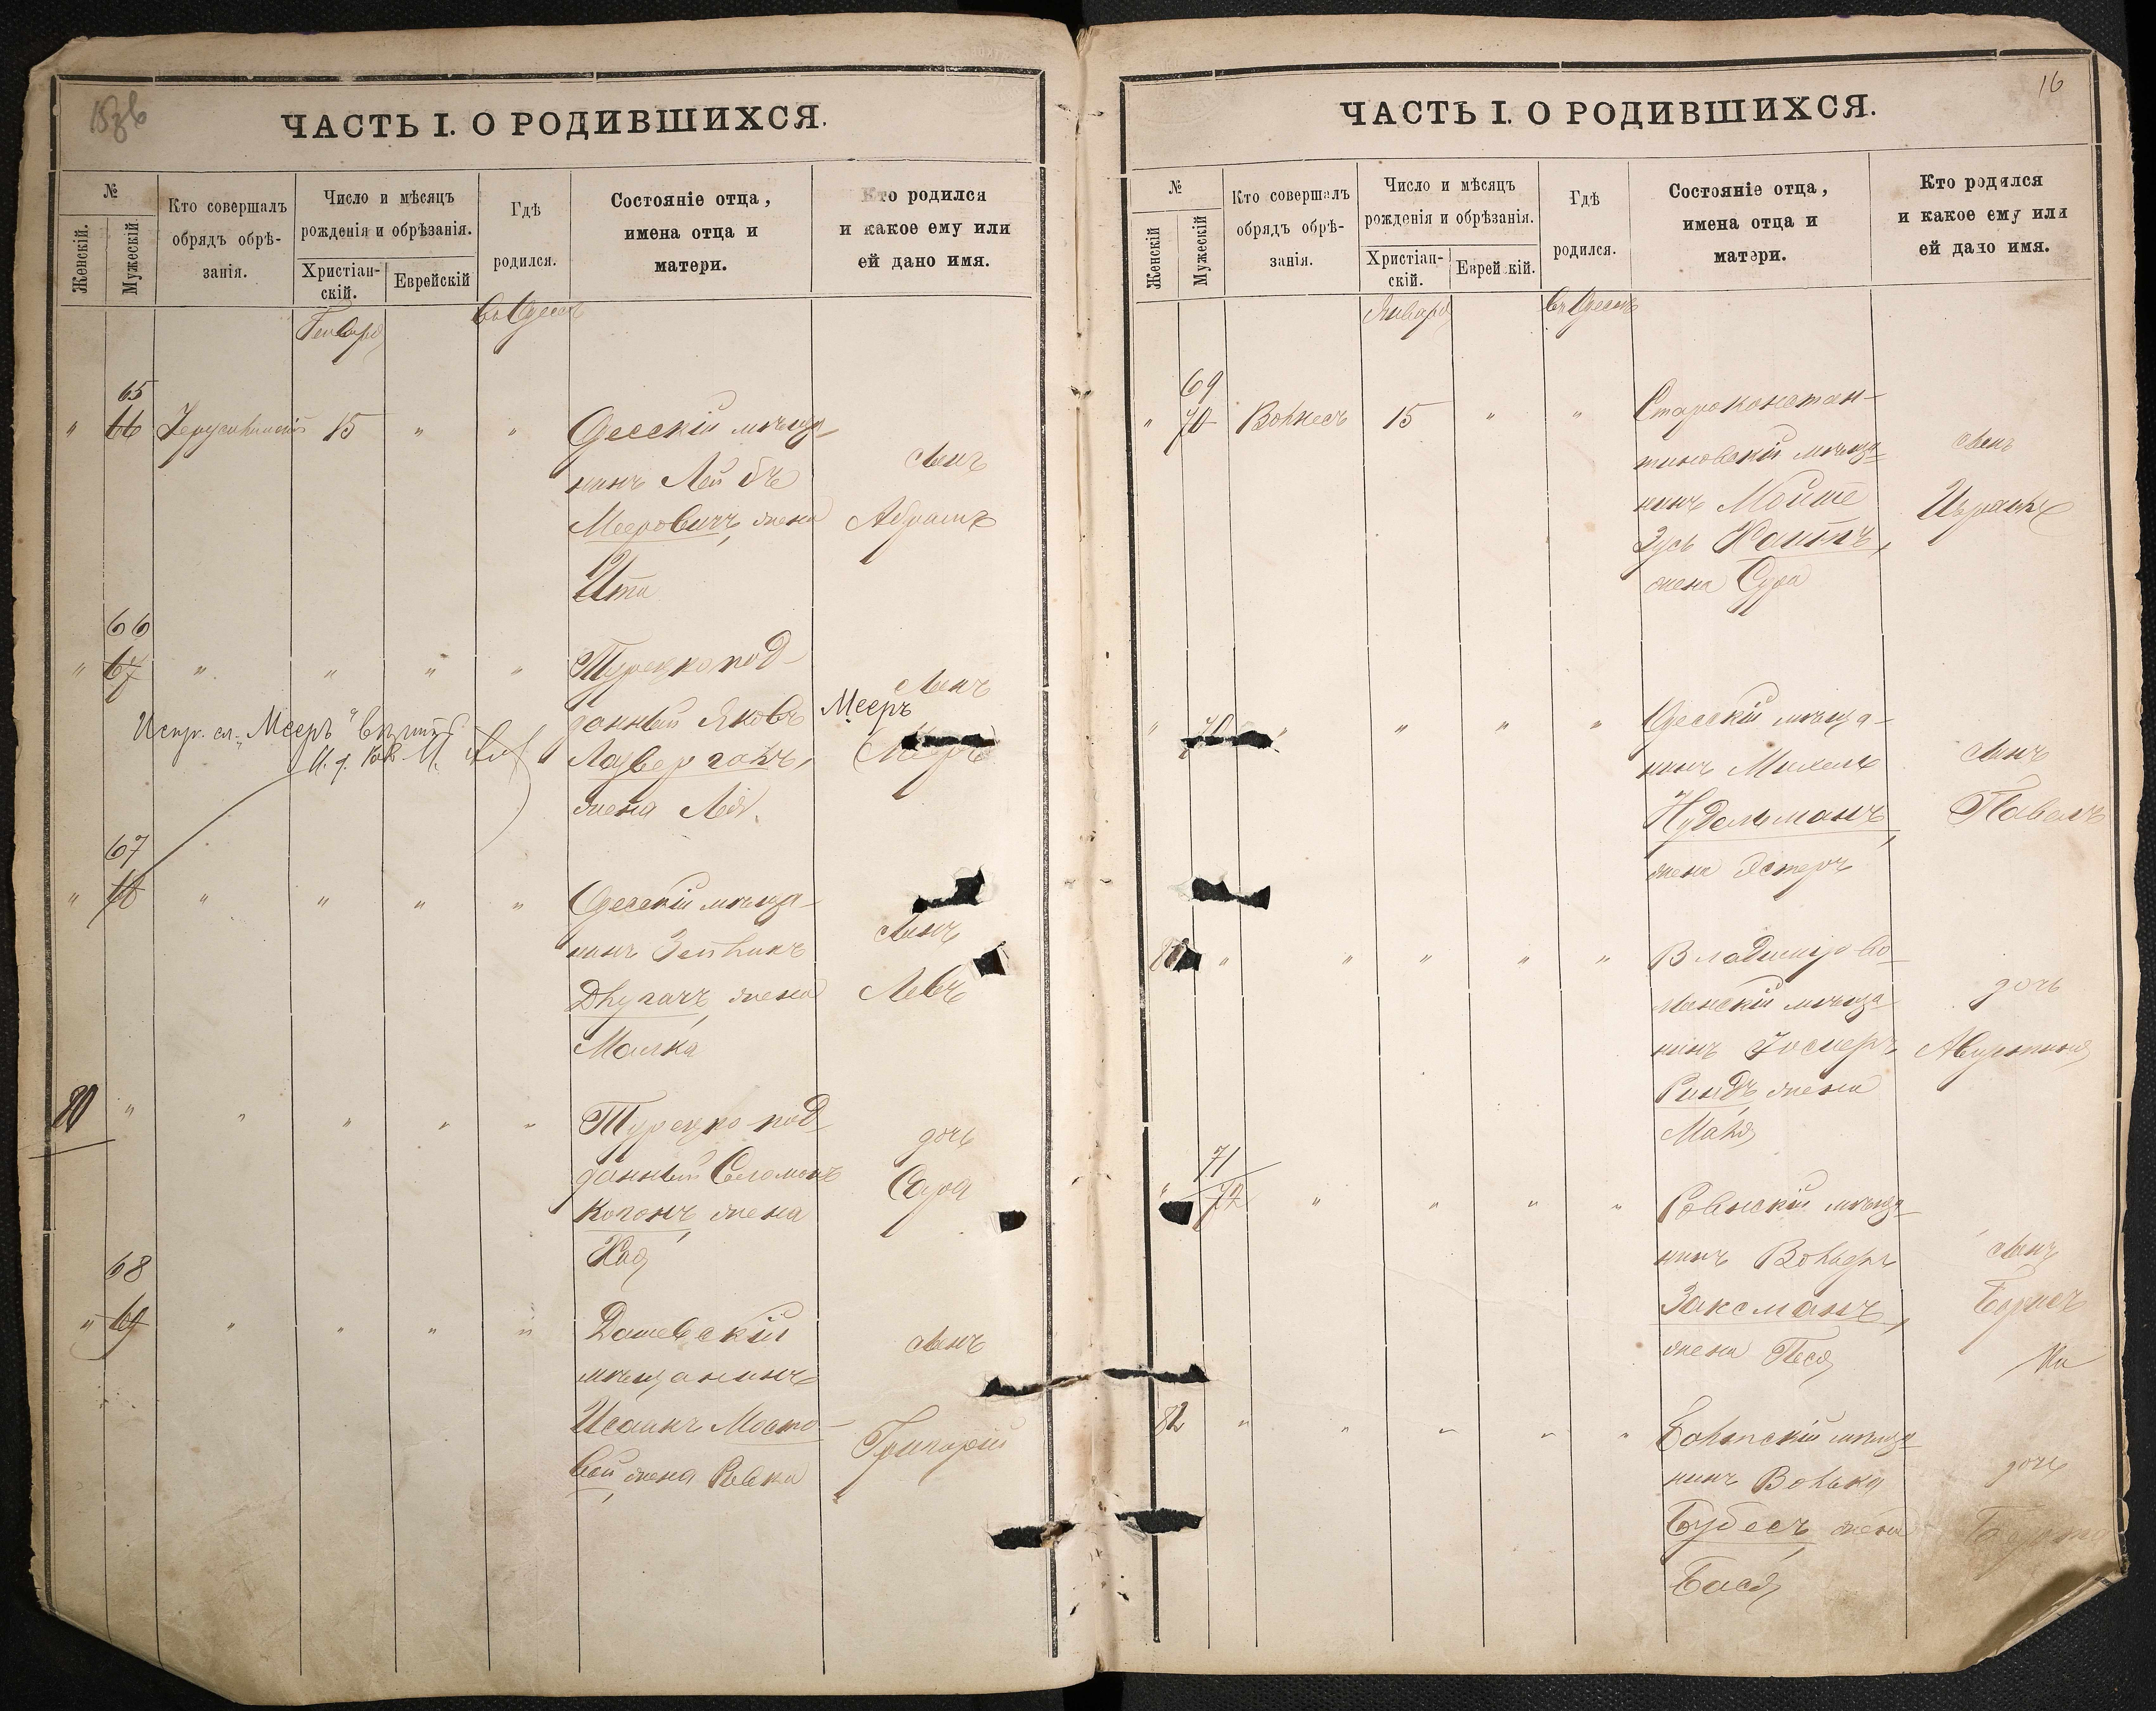 ЧАСТЬ I. О РОДИВШИХСЯ.
№
Женскій.
Мужескій.
Кто совершалъ
обрядъ обрѣ-
занія.
Число и мѣсяцъ
рожденія и обрѣзанія.
Христіан-
скій.
Еврейскій
Гдѣ
родился.
Состояніе отца,
имена отца и
матери.
Кто родился
и какое ему или
ей дано имя.
Генваря
въ Одессѣ
65
" 66 15 " "
Одесскій мѣща-
нинъ Лейбъ
Мееровичъ, жена
Ита
сынъ
Абрамъ
66
" 67 " " " "
Турецкопод-
данный Яковъ
жена Лея.
сынъ
Мееръ
Испр. сл. „Мееръ"
67
" 68 " " " "
Одесскій мѣща-
нинъ Зейликъ
жена
Малка
сынъ
Левъ
80 " " " " "
Турецко под-
данный Соломонъ
Коганъ, жена
Хая
дочь
Сара
68
" 69 " " " "
Дашевскій
мѣщанинъ
Исаакъ Мосто-
вой, жена Ривка
сынъ
Григорій
16
ЧАСТЬ I. О РОДИВШИХСЯ.
№
Женскій
Мужескій
Кто совершалъ
обрядъ обрѣ-
занія.
Число и мѣсяцъ
рожденія и обрѣзанія.
Христіан-
скій.
Еврей кій.
Гдѣ
родился.
Состояніе отца,
имена отца и
матери.
Кто родился
и какое ему или
ей дано имя.
Января
въ Одессѣ
69
" 70 15 " "
Староконстан-
тиновскій мѣща-
нинъ
Зусь
жена Сура
сынъ
Израиль
" 70 " " " "
Одесскій мѣща-
нинъ Михель
Нудельманъ,
жена Эстеръ
сынъ
Павелъ
" " " " "
Владимиръ во-
лынскій мѣща-
нинъ
жена
Маня
дочь
71
" 72 " " " "
Ровенскій мѣща-
нинъ
Заксманъ,
жена Песя
сынъ
Борисъ
82 " " " " "
мѣща-
нинъ Волько
Бубесъ, жена
Бася
дочь